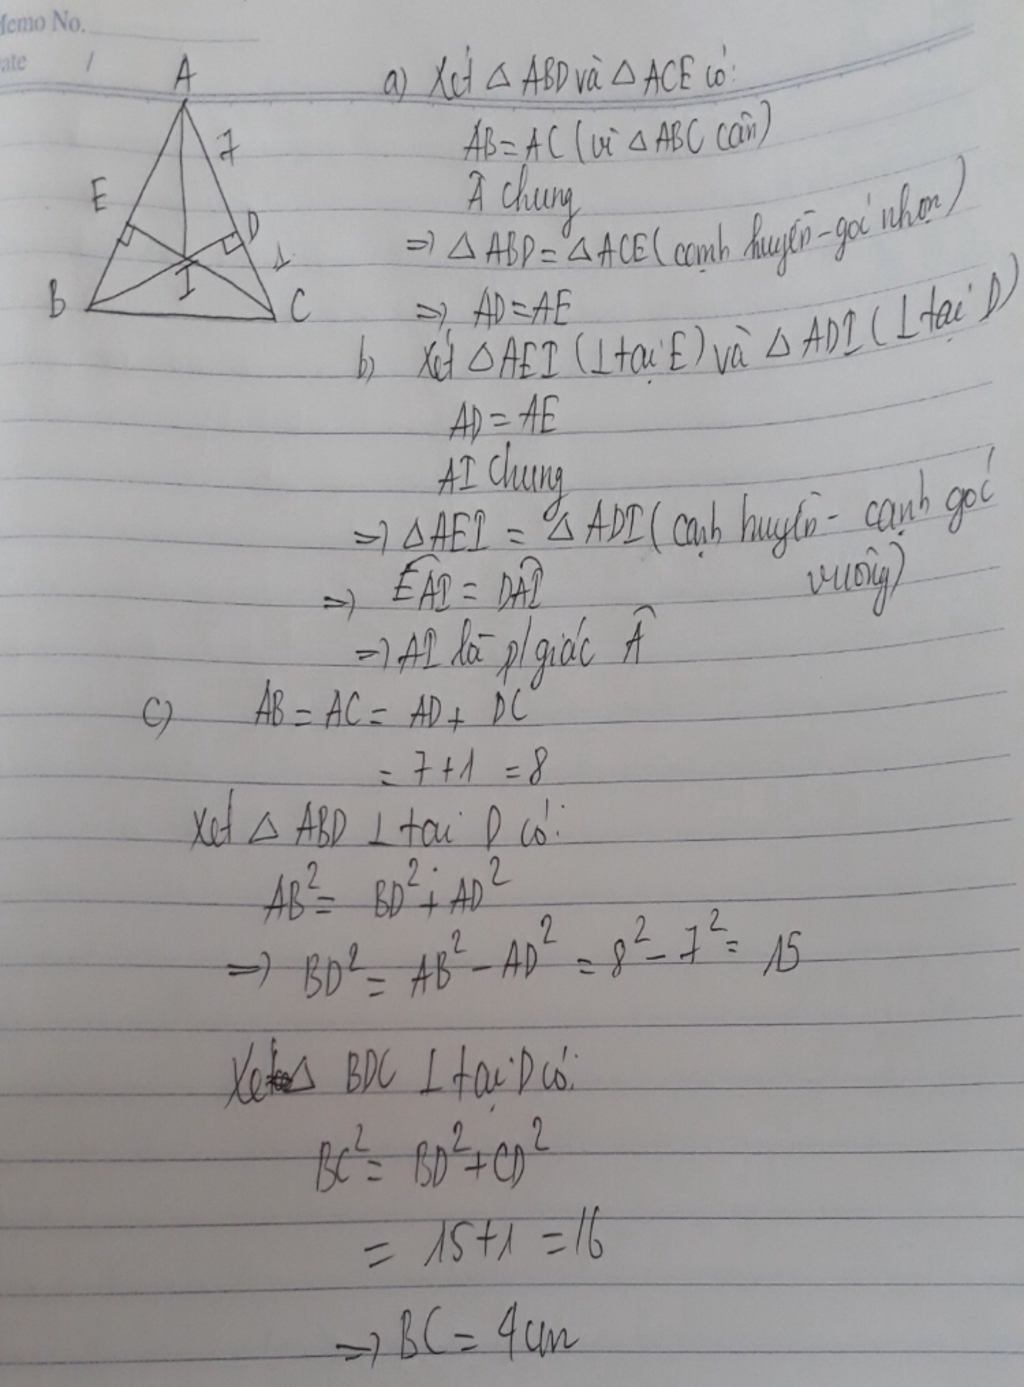 Memo No.
Date /
A
7
E
D
1
I
B
C
a) Xét △ ABD và △ ACE có:
AB = AC (vì △ ABC cân)
Â chung
=> △ ABD = △ ACE (cạnh huyền - góc nhọn)
=> AD = AE
b) Xét △ AEI (⊥ tại E) và △ ADI (⊥ tại D)
AD = AE
AI chung
=> △ AEI = △ ADI (cạnh huyền - cạnh góc
vuông)
=> EÂI = DÂI
=> AI là p/giác Â
c) AB = AC = AD + DC
= 7 + 1 = 8
Xét △ ABD ⊥ tại D có:
AB² = BD² + AD²
=> BD² = AB² - AD² = 8² - 7² = 15
Xét △ BDC ⊥ tại D có:
BC² = BD² + CD²
= 15 + 1 = 16
=> BC = 4cm